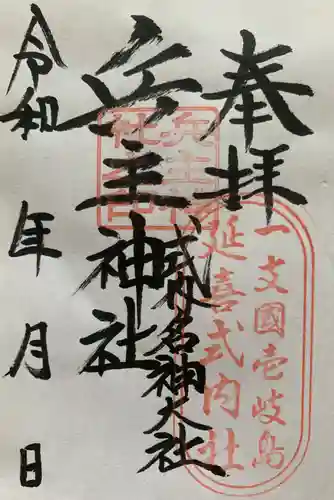 奉拝
一支國壱岐島
延喜式内社
式内名神大社
兵主神社
令和 年 月 日